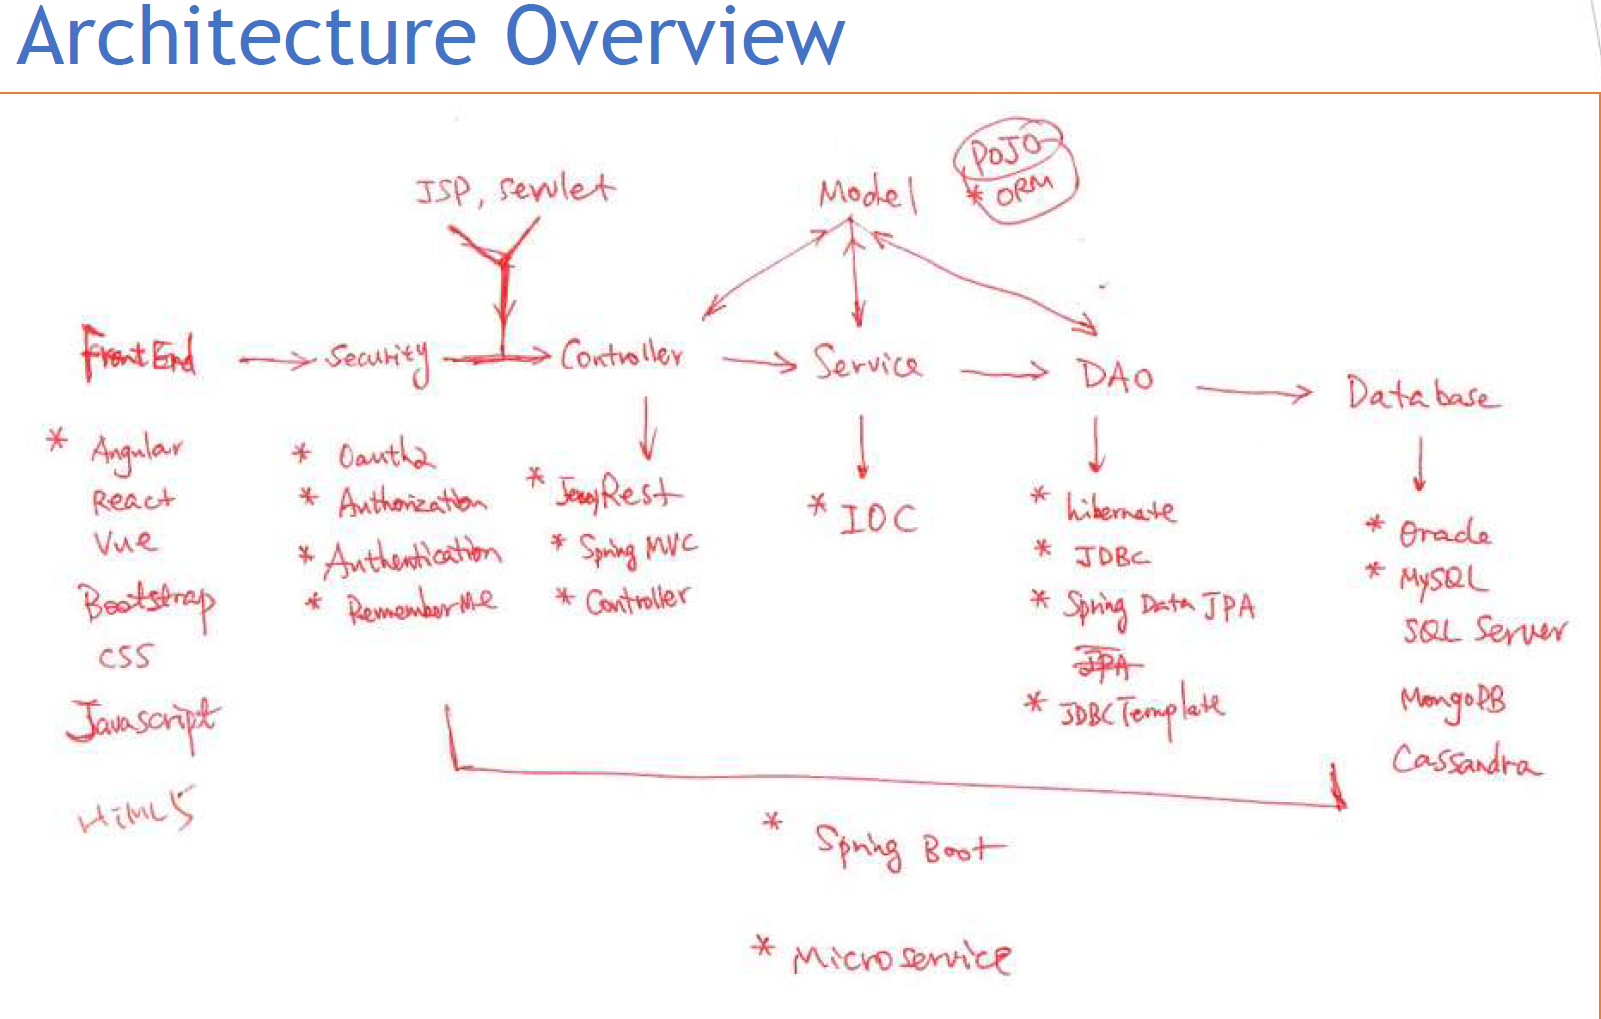 Architecture Overview
POJO
* ORM
JSP, Servlet
Model
Front End
Security
Controller
Service
DAO
Database
* Angular
React
Vue
Bootstrap
CSS
Javascript
HTML5
* Oauth2
* Authorization
* Authentication
* RememberMe
* Rest
* Spring MVC
* Controller
* IOC
* hibernate
* JDBC
* Spring Data JPA
JPA
* JDBCTemplate
* Oracle
* MySQL
SQL Server
MongoDB
Cassandra
* Spring Boot
* Microservice